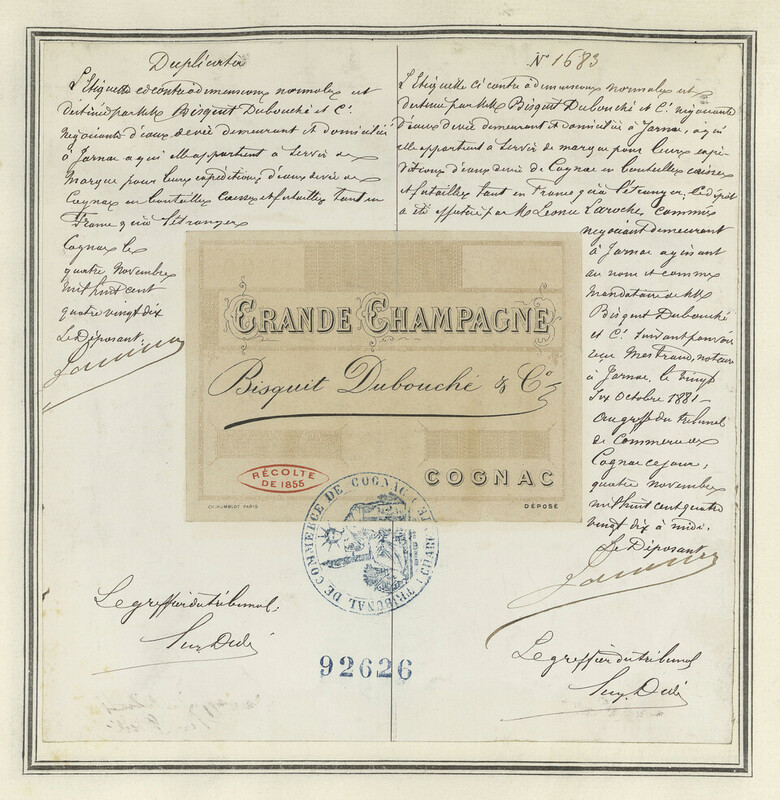 Duplicata
L'Etiquette ci contre à dimensions normales est
destinée par MM Bisquit Dubouché et Cie
négociants d'eaux de vie demeurant et domiciliés
à Jarnac a qui elle appartient à servir de
Marque pour leurs expéditions d'eaux de vie de
Cognac en bouteilles caisses et futailles tant en
France qu'à l'étranger
Cognac le
quatre Novembre
mil huit cent
quatre vingt dix
Le Déposant:
Le greffier du tribunal,
N 1683
L'Etiquette ci contre à dimensions normales est
destinée par MM Bisquit Dubouché et Cie négociants
d'eaux de vie demeurant et domiciliés à Jarnac, a qui
elle appartient à servir de marque pour leurs expé-
ditions d'eaux de vie de Cognac en bouteilles caisses
et futailles tant en France qu'à l'étranger, le dépôt
a été effectué par M Léonce Laroche, commis
négociant demeurant
à Jarnac agissant
au nom et comme
mandataire de MM
Bisquit Dubouché
et Cie suivant pouvoir
reçu notaire
à Jarnac, le vingt
six Octobre 1881 -
au greffe du tribunal
de Commerce de
Cognac ce jour,
quatre novembre
mil huit cent quatre
vingt dix à midi.
Le Déposant
Le greffier du tribunal
GRANDE CHAMPAGNE
Bisquit Dubouché & Co
RÉCOLTE
DE 1855
COGNAC
CH. HUMBLOT PARIS
DÉPOSÉ
TRIBUNAL DE COMMERCE DE COGNAC
92626